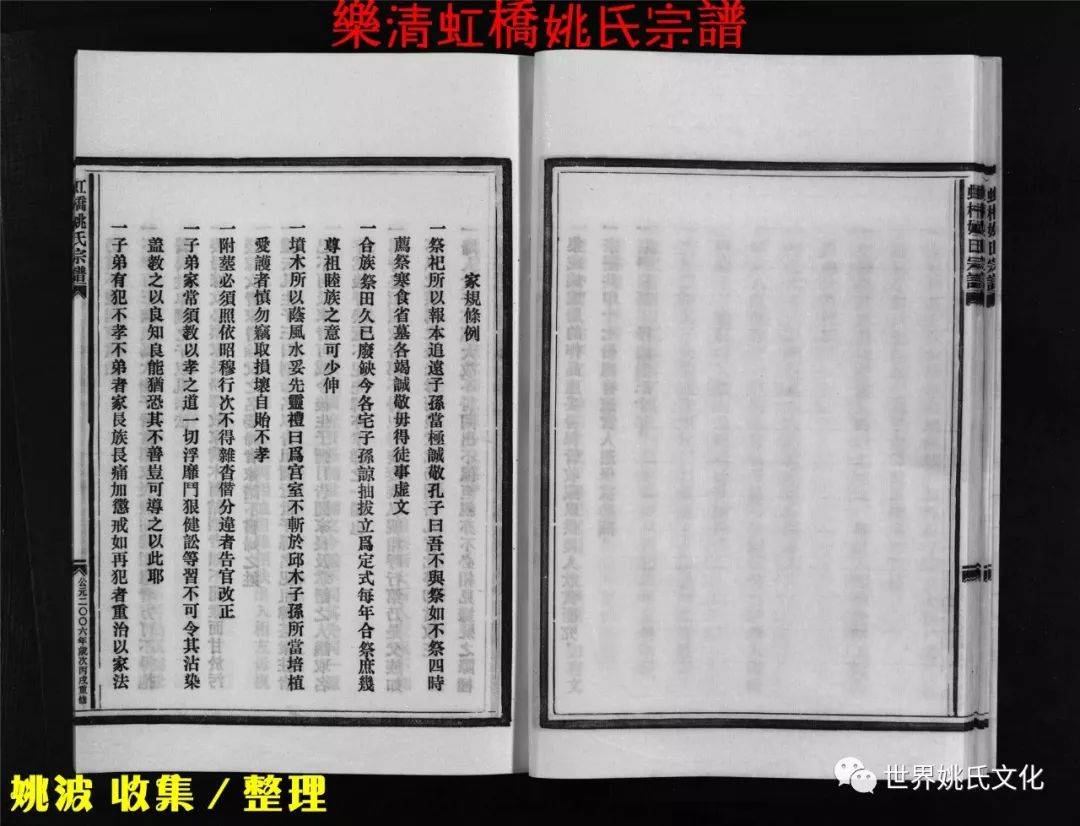 樂清虹橋姚氏宗譜
家規條例
一祭祀所以報本追遠子孫當極誠敬孔子曰吾不與祭如不祭四時
薦祭寒食省墓各竭誠敬毋得徒事虛文
一合族祭田久已廢缺今各宅子孫諒抽拔立爲定式每年合祭庶幾
尊祖睦族之意可少伸
一墳木所以蔭風水妥先靈禮曰爲宫室不斬於邱木子孫所當培植
愛護者慎勿竊取損壞自貽不孝
一附塟必須照依昭穆行次不得雜沓僭分違者告官改正
一子弟家常須教以孝之道一切浮靡鬥狠健訟等習不可令其沾染
蓋教之以良知良能猶恐其不善豈可導之以此耶
一子弟有犯不孝不弟者家長族長痛加懲戒如再犯者重治以家法
虹橋姚氏宗譜
公元二〇〇六年歲次丙戌重修
姚波 收集／整理
世界姚氏文化